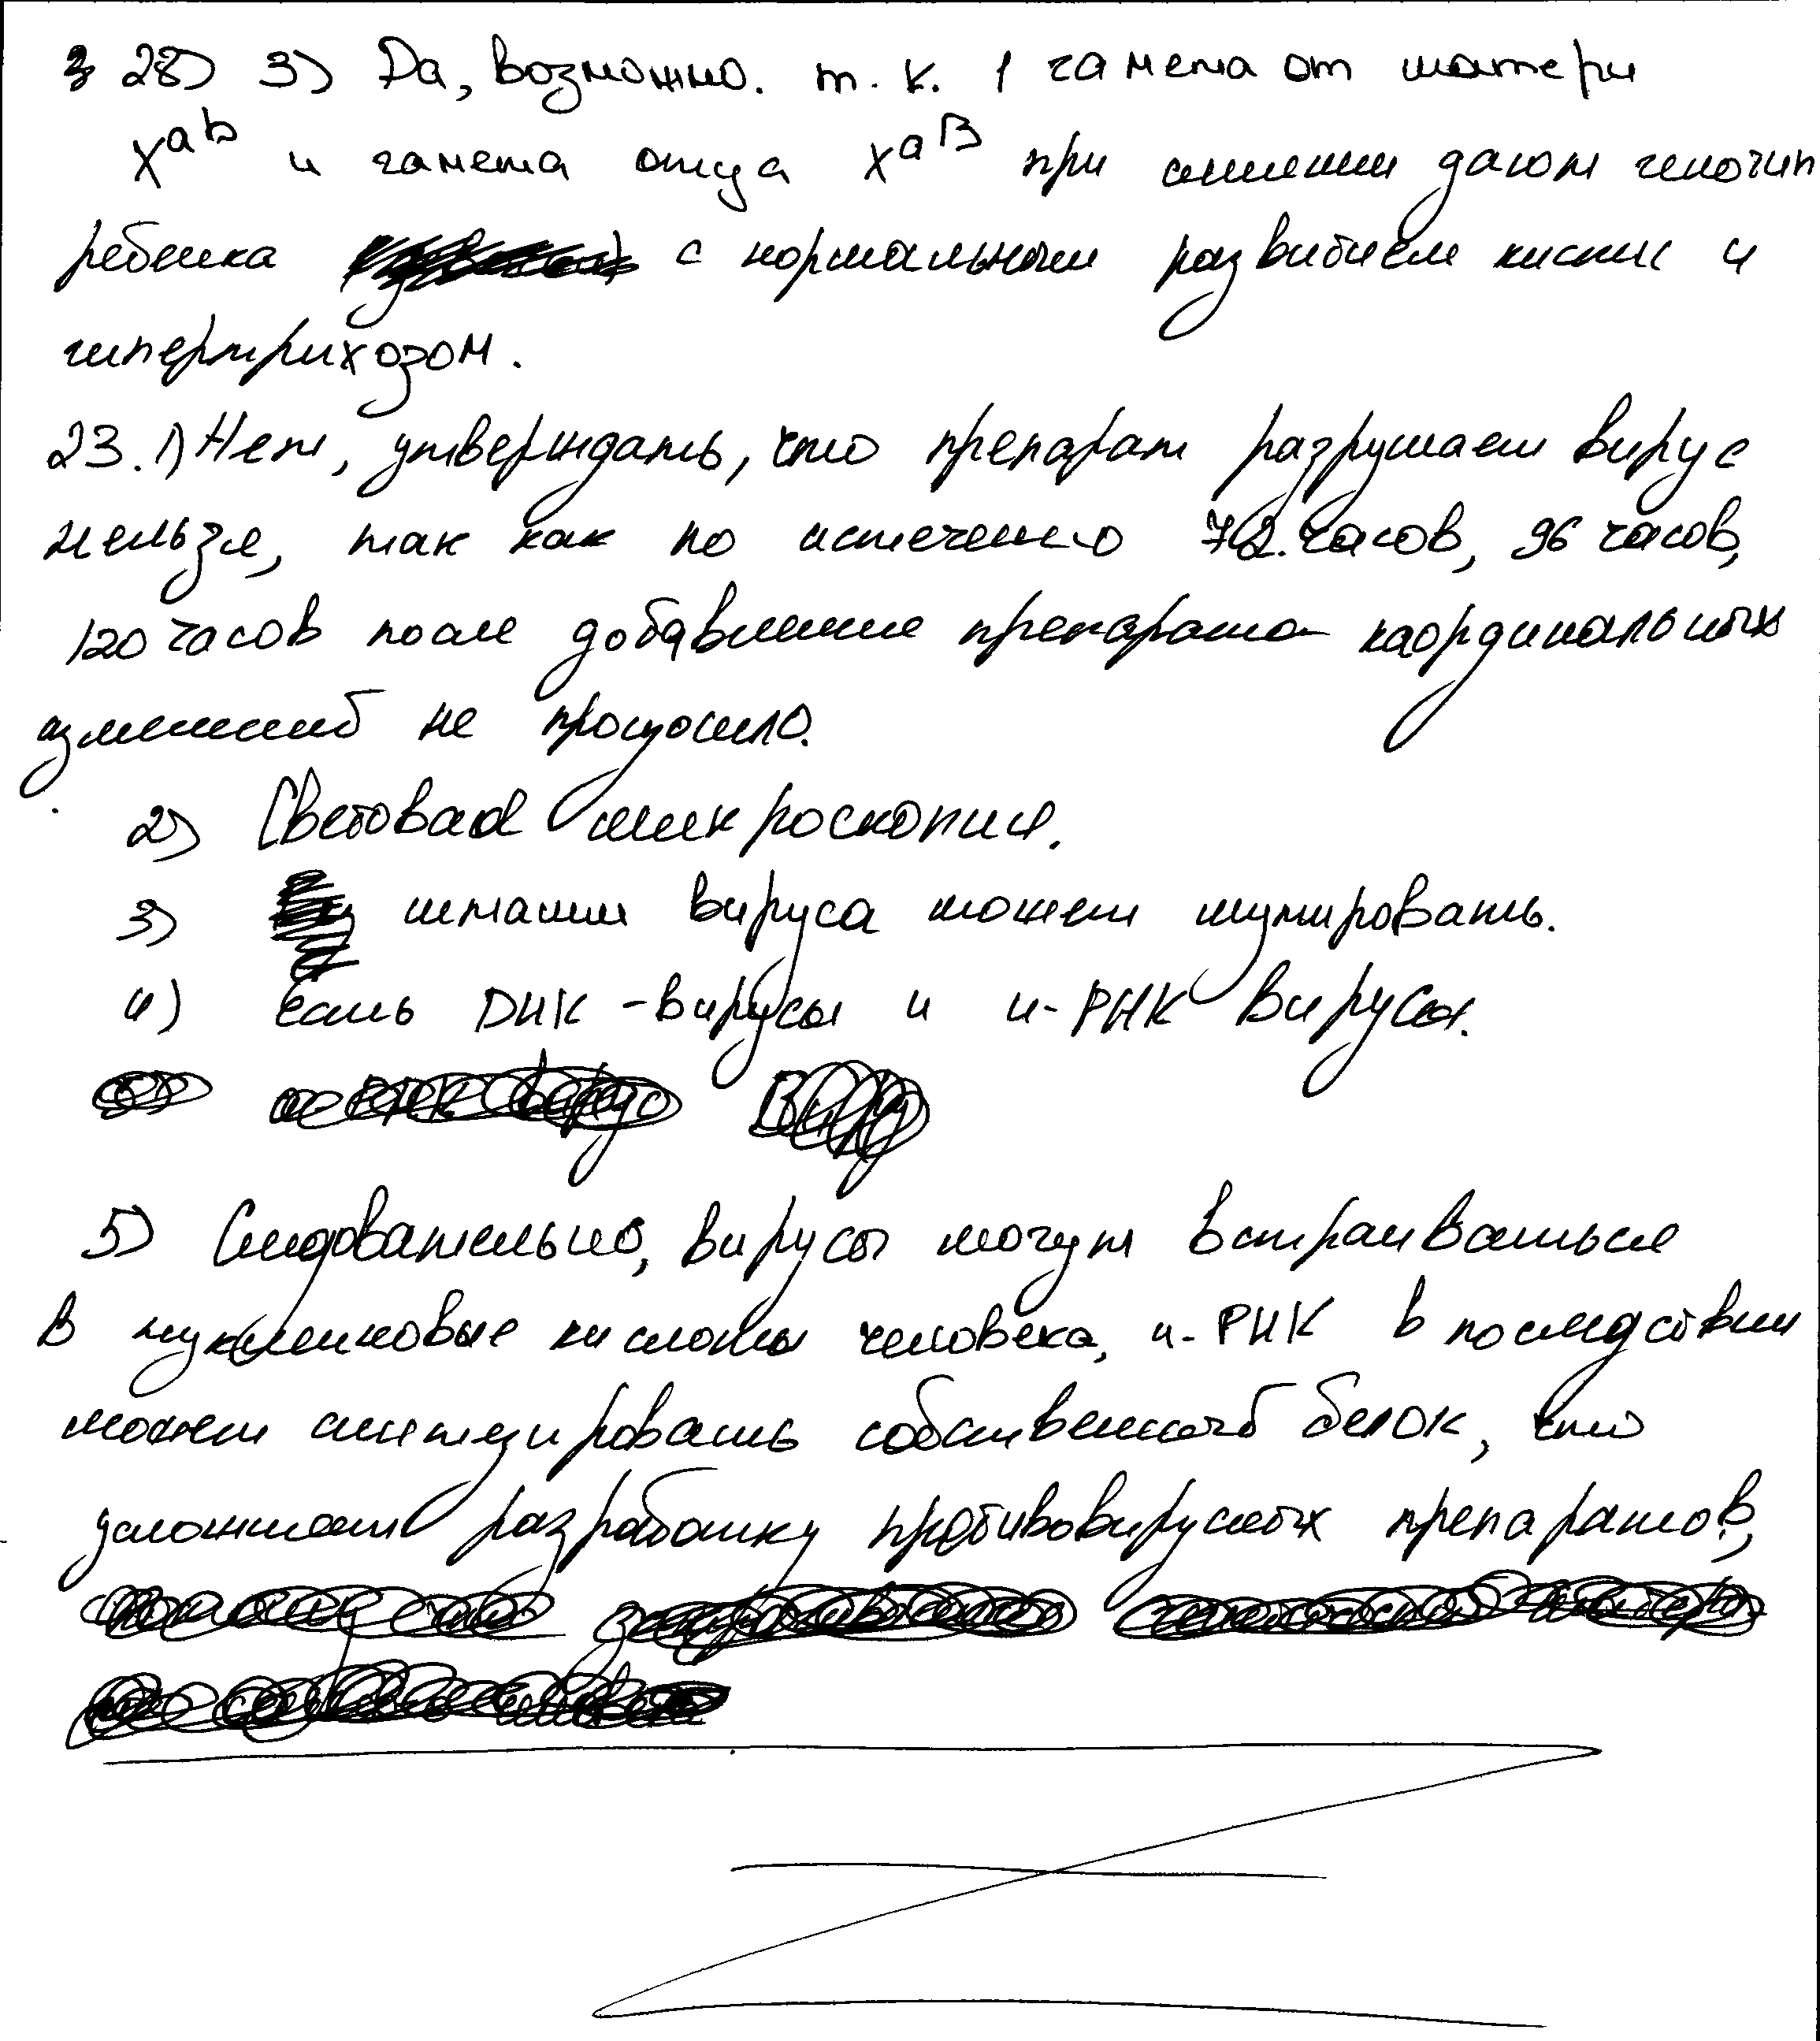 28) 3) Да, возможно. т. к. 1 гамета от матери
X^ab и гамета отца X^aB при слиянии дают генотип
ребенка с нормальным развитием кисти и
гипертрихозом.
23. 1) Нет, утверждать, что препарат разрушает вирус
нельзя, так как по истечению 72 часов, 96 часов,
120 часов после добавления препарата каординальных
изменений не произошло.
2) Световая микроскопия.
3) штамм вируса может мутировать.
4) Есть ДНК-вирусы и и-РНК вирусы.
5) Следовательно, вирусы могут встраиваться
в нуклеиновые кислоты человека, и-РНК в последствии
может синтезировать собственный белок, что
усложняет разработку противовирусных препаратов,